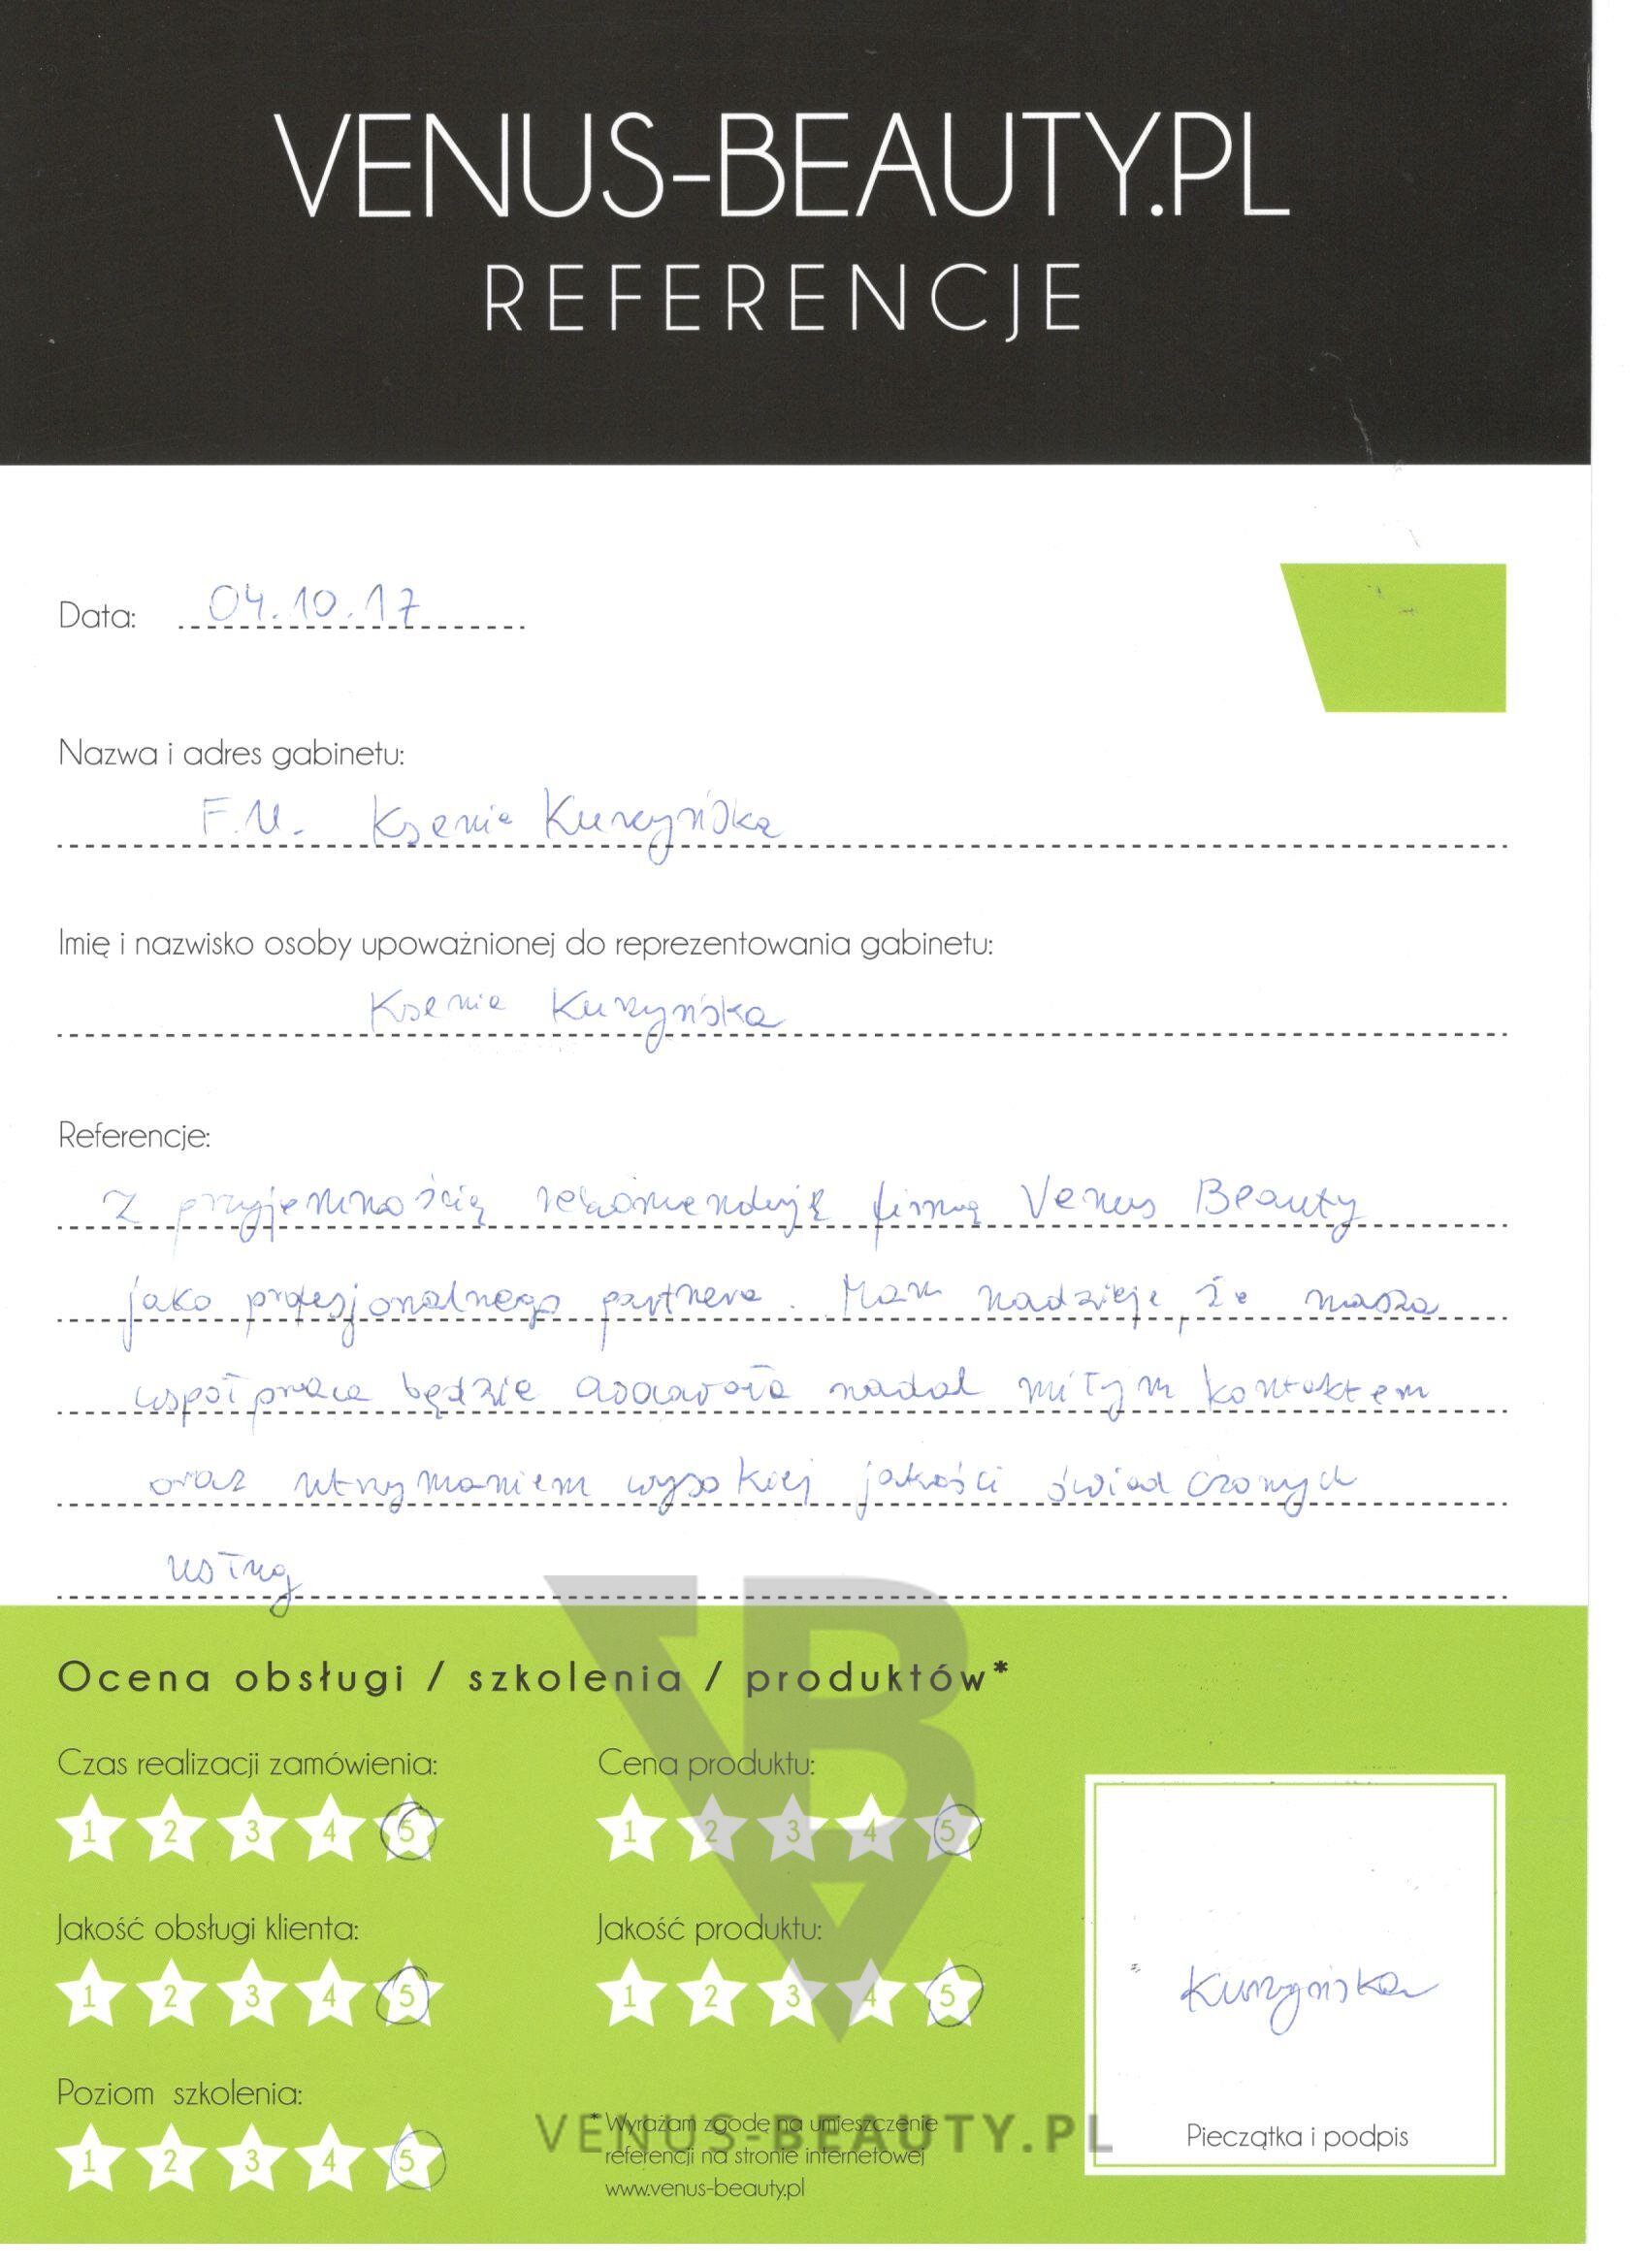 VENUS-BEAUTY.PL
REFERENCJE
Data: 04.10.17
Nazwa i adres gabinetu:
F.U. Ksenia
Imię i nazwisko osoby upoważnionej do reprezentowania gabinetu:
Ksenia
Referencje:
Z przyjemnością rekomenduję firmę Venus Beauty
jako profesjonalnego partnera. Mam nadzieję, że nasza
współpraca będzie nadal miłym kontaktem
oraz utrzymaniem wysokiej jakości świadczonych
usług
Ocena obsługi / szkolenia / produktów*
Czas realizacji zamówienia: Cena produktu:
1 2 3 4 5 1 2 3 4 5
Jakość obsługi klienta: Jakość produktu:
1 2 3 4 5 1 2 3 4 5
Poziom szkolenia:
1 2 3 4 5
* Wyrażam zgodę na umieszczenie
referencji na stronie internetowej
www.venus-beauty.pl
Pieczątka i podpis
VB
VENUS-BEAUTY.PL